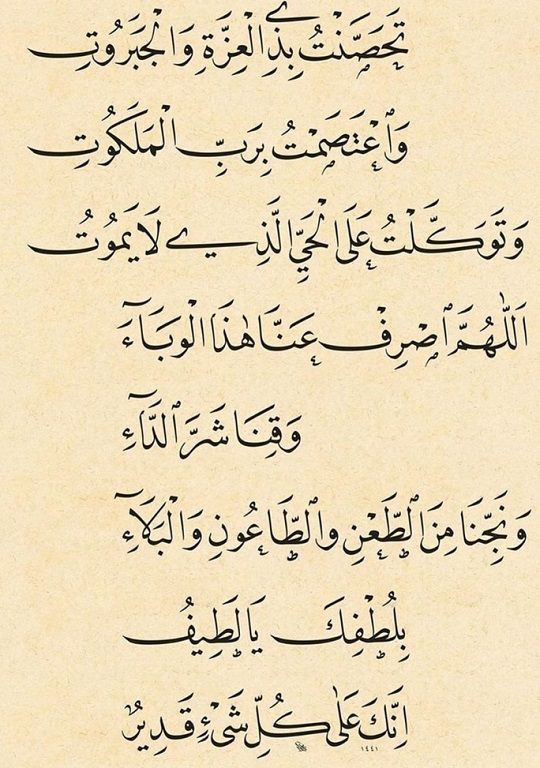 تَحَصَّنْتُ بِذِي الْعِزَّةِ وَالْجَبَرُوتِ
وَاعْتَصَمْتُ بِرَبِّ الْمَلَكُوتِ
وَتَوَكَّلْتُ عَلَى الْحَيِّ الَّذِي لَا يَمُوتُ
اَللّٰهُمَّ اصْرِفْ عَنَّا هٰذَا الْوَبَاءَ
وَقِنَا شَرَّ الدَّاءِ
وَنَجِّنَا مِنَ الطَّعْنِ والطَّاعُونِ وَالْبَلَاءِ
بِلُطْفِكَ يَا لَطِيفُ
اِنَّكَ عَلٰى كُلِّ شَيْءٍ قَدِيرٌ
١٤٤١